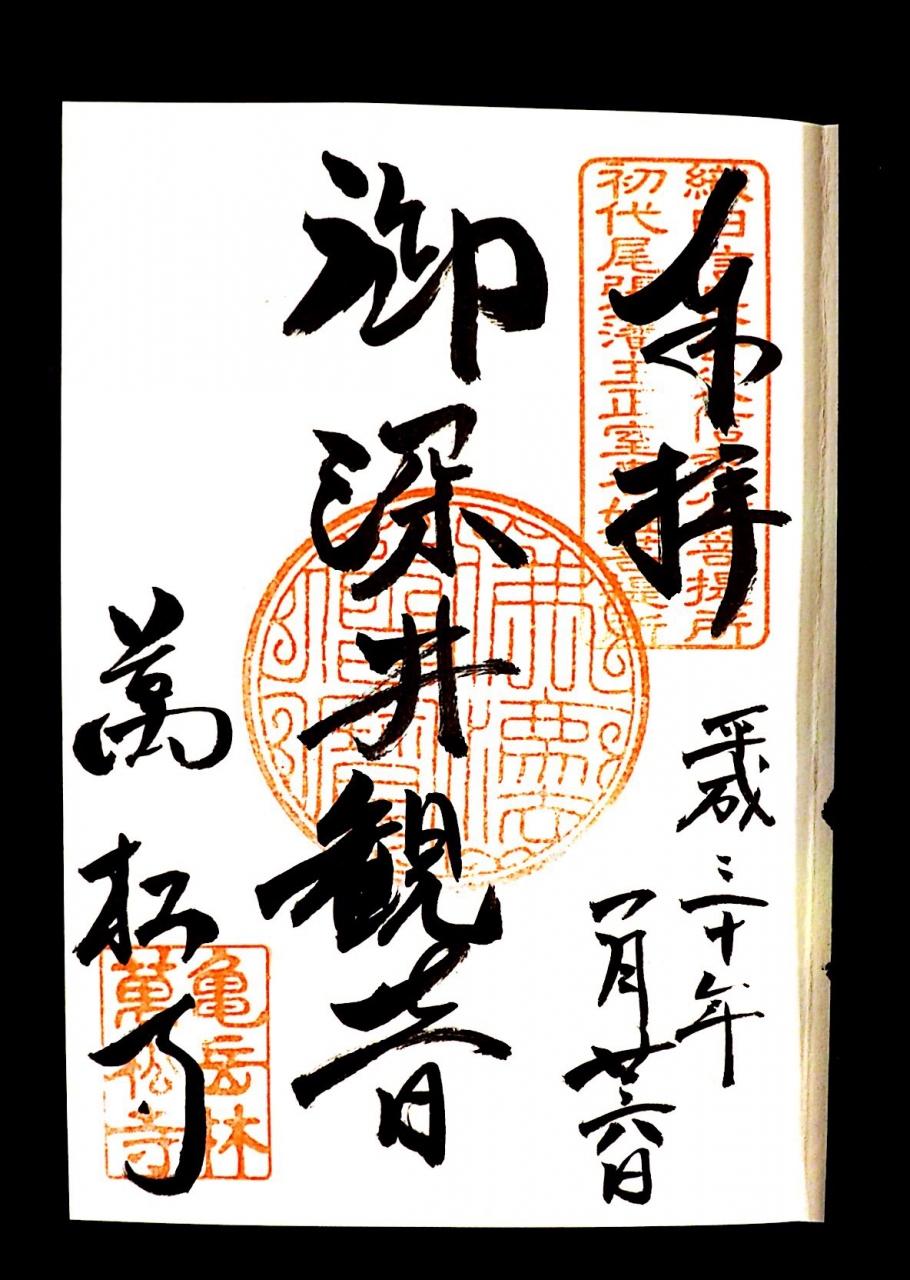 奉拝
平成三十年
一月廿六日
御深井観音
萬松寺
初代尾張藩主正室
菩提所
亀岳林
萬松寺